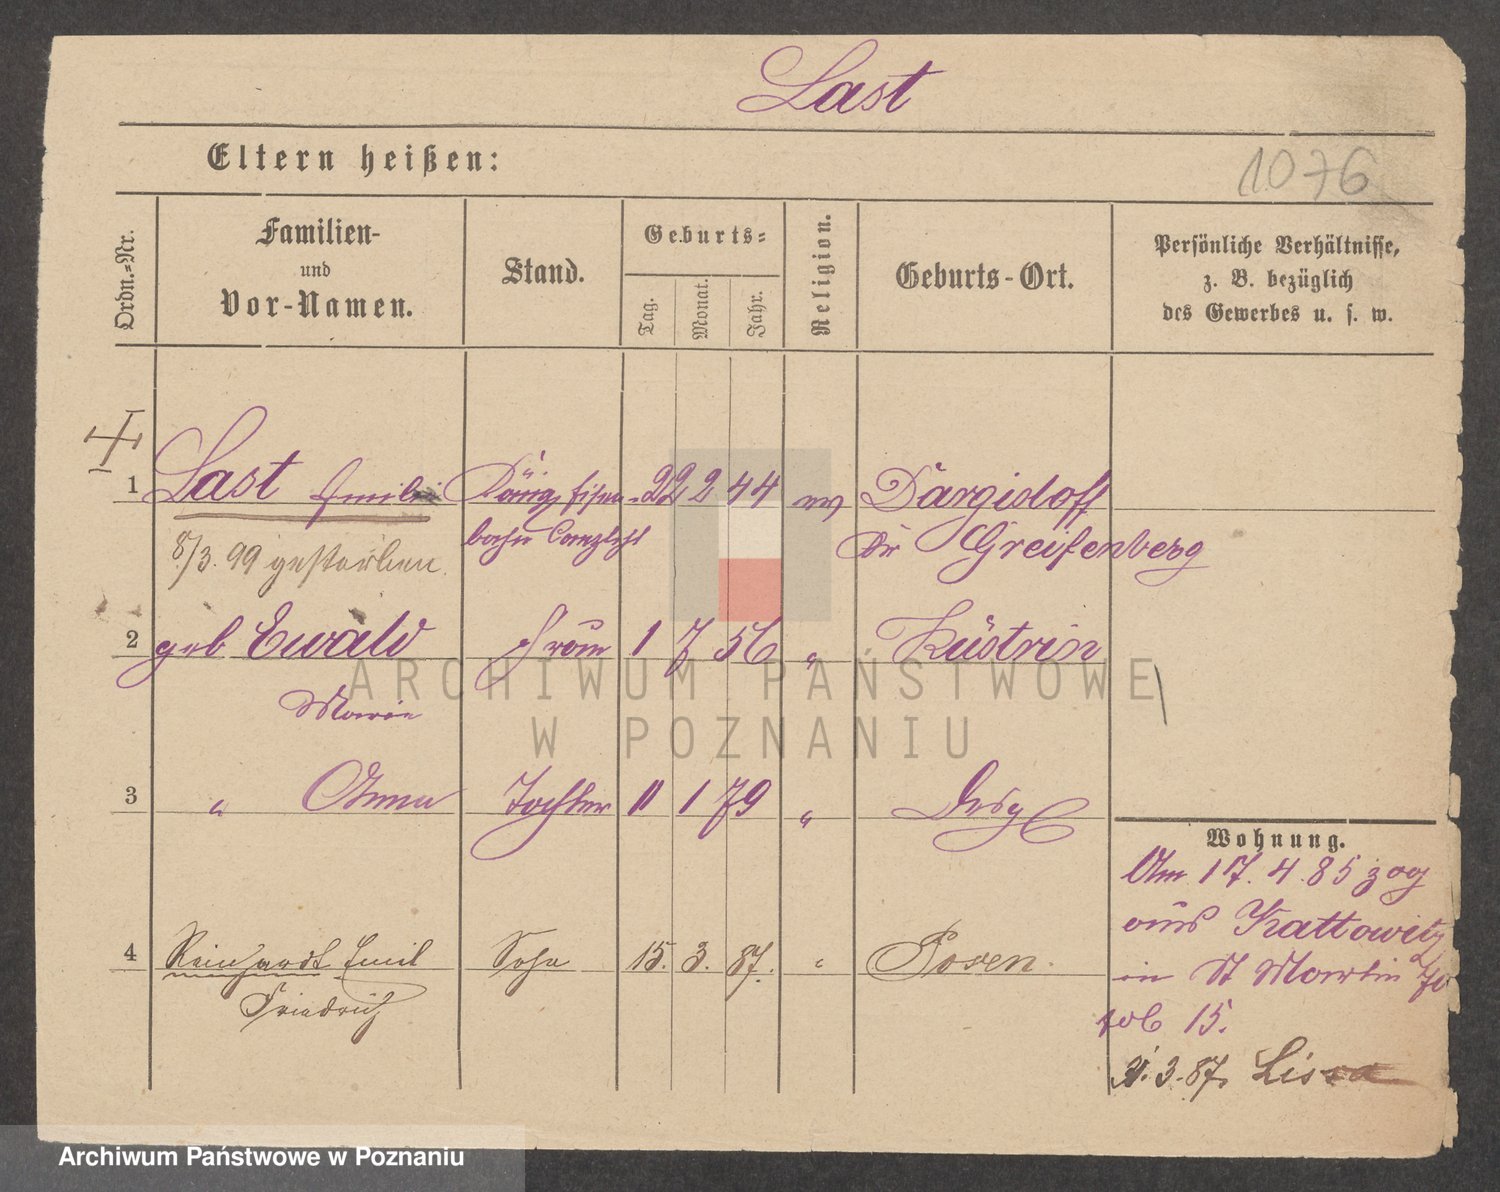 Last
Eltern heißen:
1076
Ordn.-Nr.
Familien-
und
Vor-Namen.
Stand.
Geburts-
Tag.
Monat.
Jahr.
Religion.
Geburts-Ort.
Persönliche Verhältnisse,
z. B. bezüglich
des Gewerbes u. s. w.
1 Last Emil König Eisen- 22 2 44 ev Dargislaff
bahn Canzlist Kr Greifenberg
8/3. 99 gestorben.
2 geb Ewald Frau 1 7 56 " Küstrin
Marie
3 " Anna Tochter 11 1 79 "
Wohnung.
Am 17. 4. 85 zog
aus Kattowitz
in St Martin
15.
4 Reinhardt Emil Sohn 15. 3. 87. " Posen.
Friedrich
3. 87. Lissa
ARCHIWUM PAŃSTWOWE
W POZNANIU
Archiwum Państwowe w Poznaniu